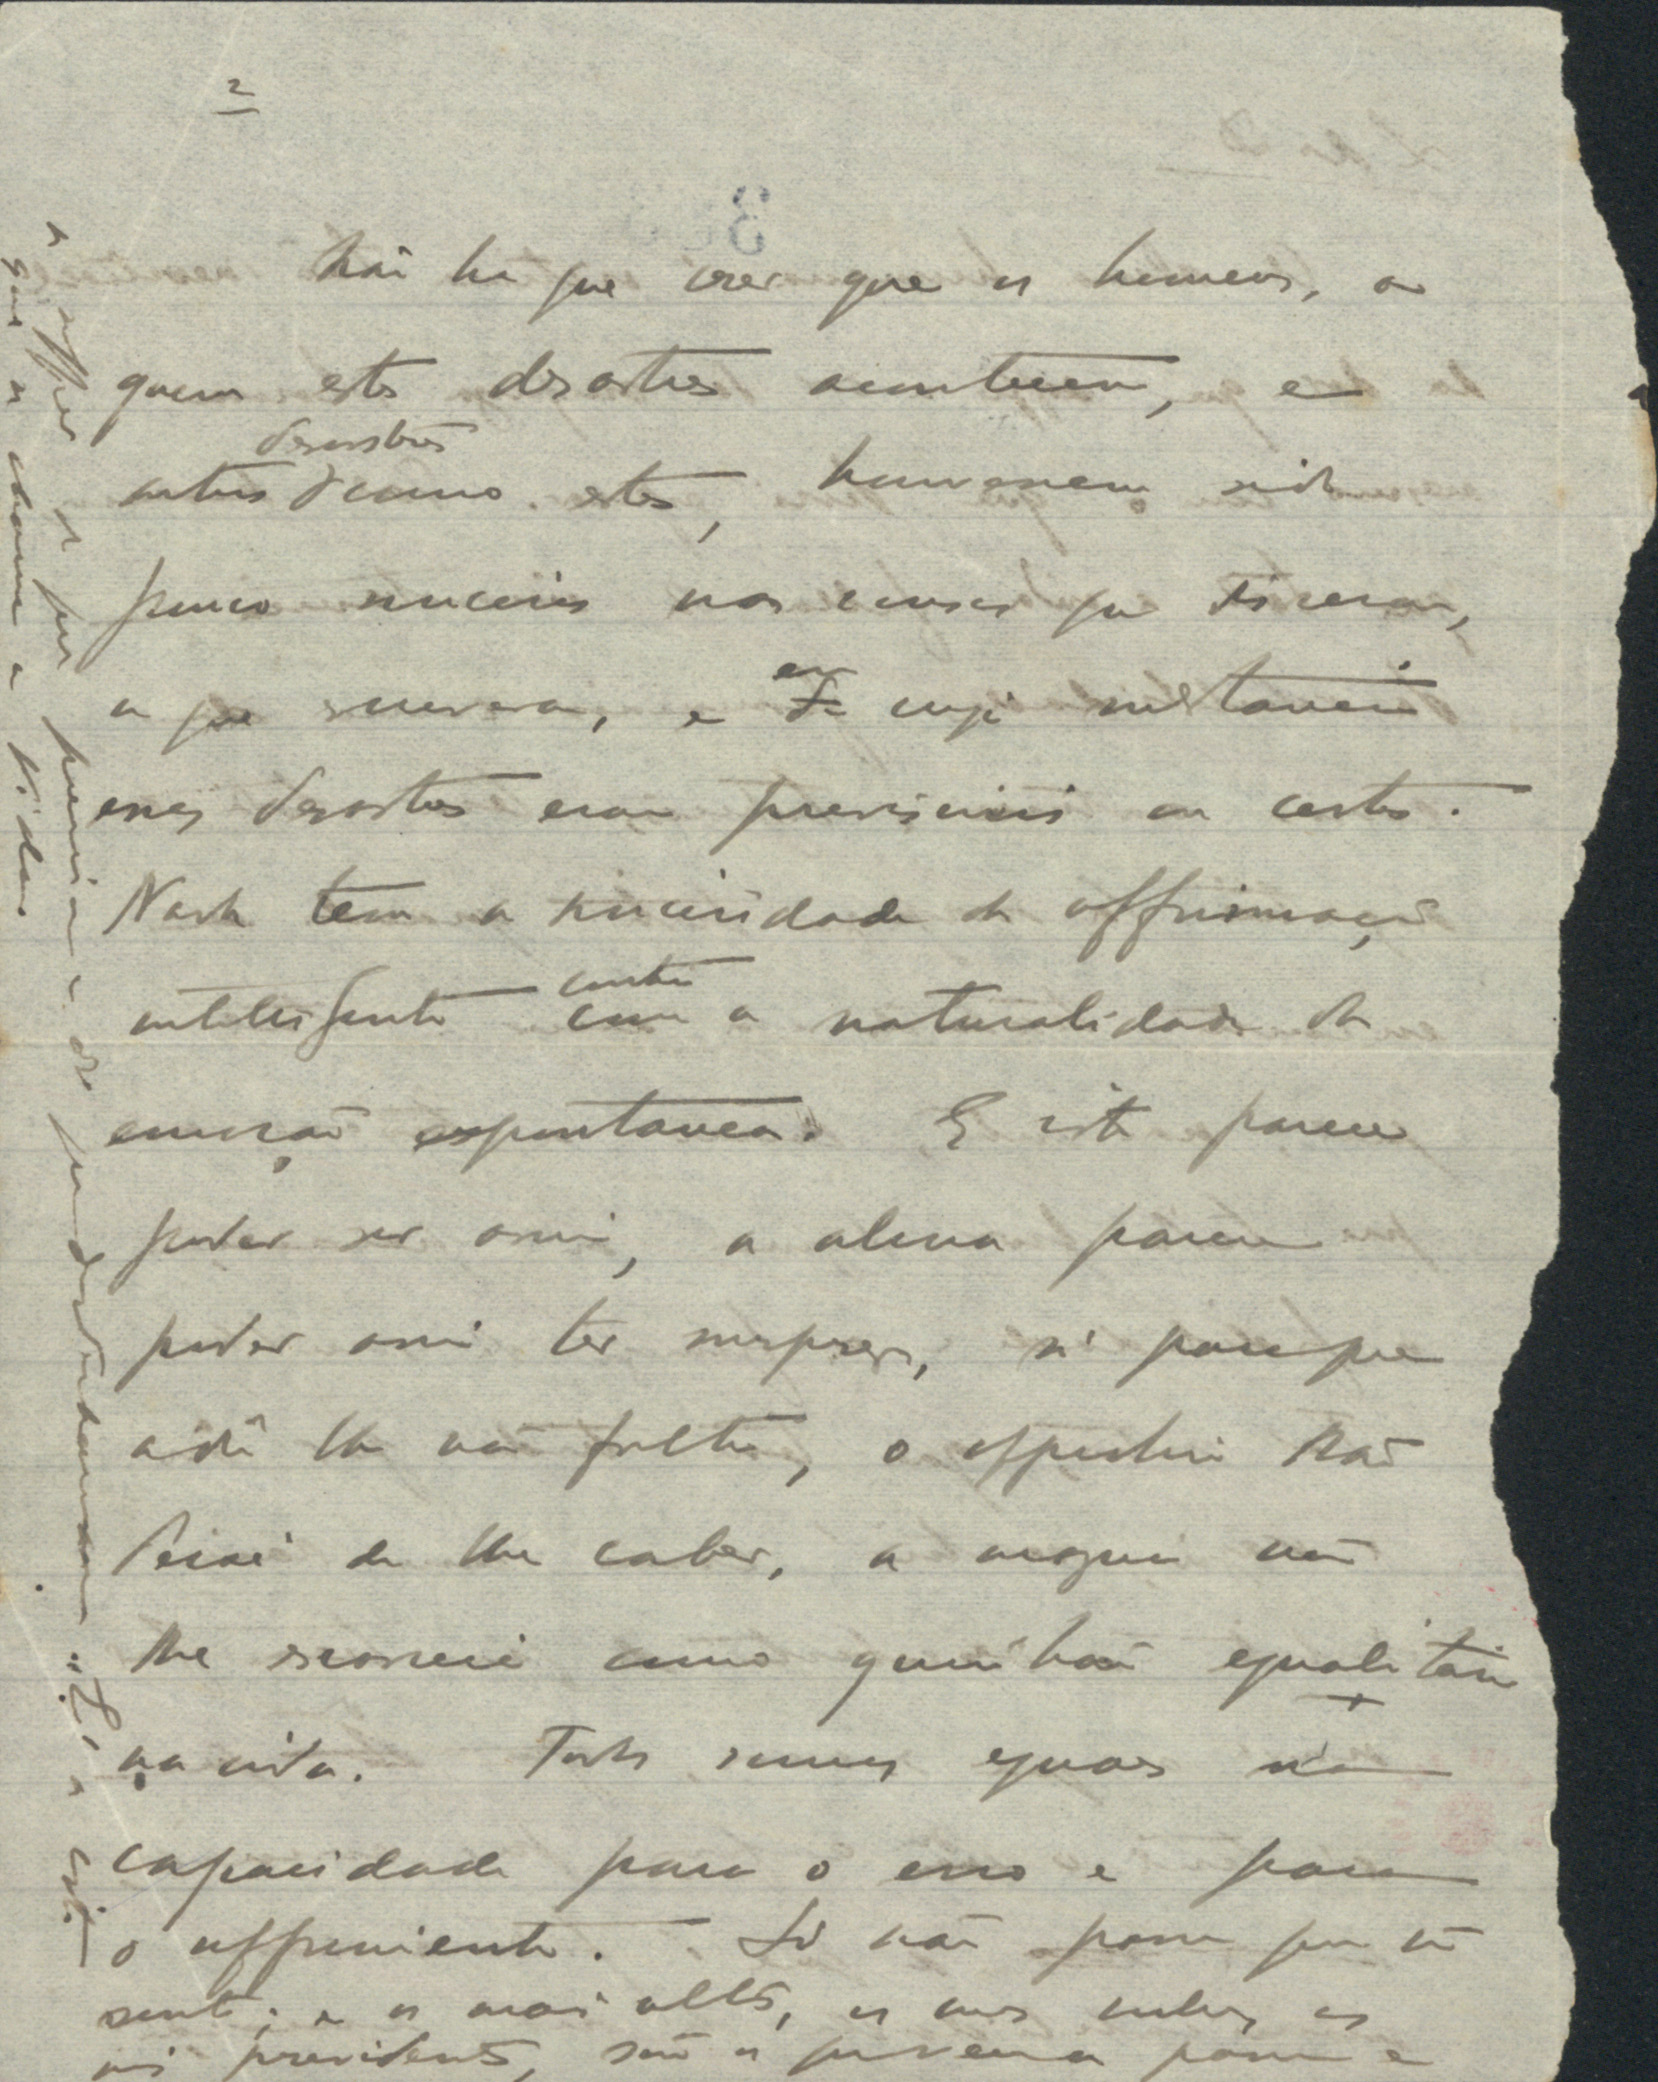 2
Não ha que crer que os homens, a
quem estes desastres acontecem, e
outros desastres como estes, houvessem sido
pouco sinceros nas cousas que fizeram,
a que
em de cuja
esses desastres eram previsiveis ou certos.
Nada tem a sinceridade da affirmação
intelligente contra com a naturalidade da
emoção espontanea. E isto parece
poder ser assim, a alma parece
poder assim ter surpresas, só para que
a dôr lhe não falte, o opprobrio não
deixe de lhe caber, a magua não
lhe escasseie como quinhão egualitario
na vida. Todos somos eguaes na
capacidade para o erro e para
o soffrimento. Só não passa quem não
sente; e os mais altos, os mais nobres, os
mais previdentes, são os que veem a passar e
a soffrer do que previam e do que desdenhavam. É a isto
que se chama a Vida.